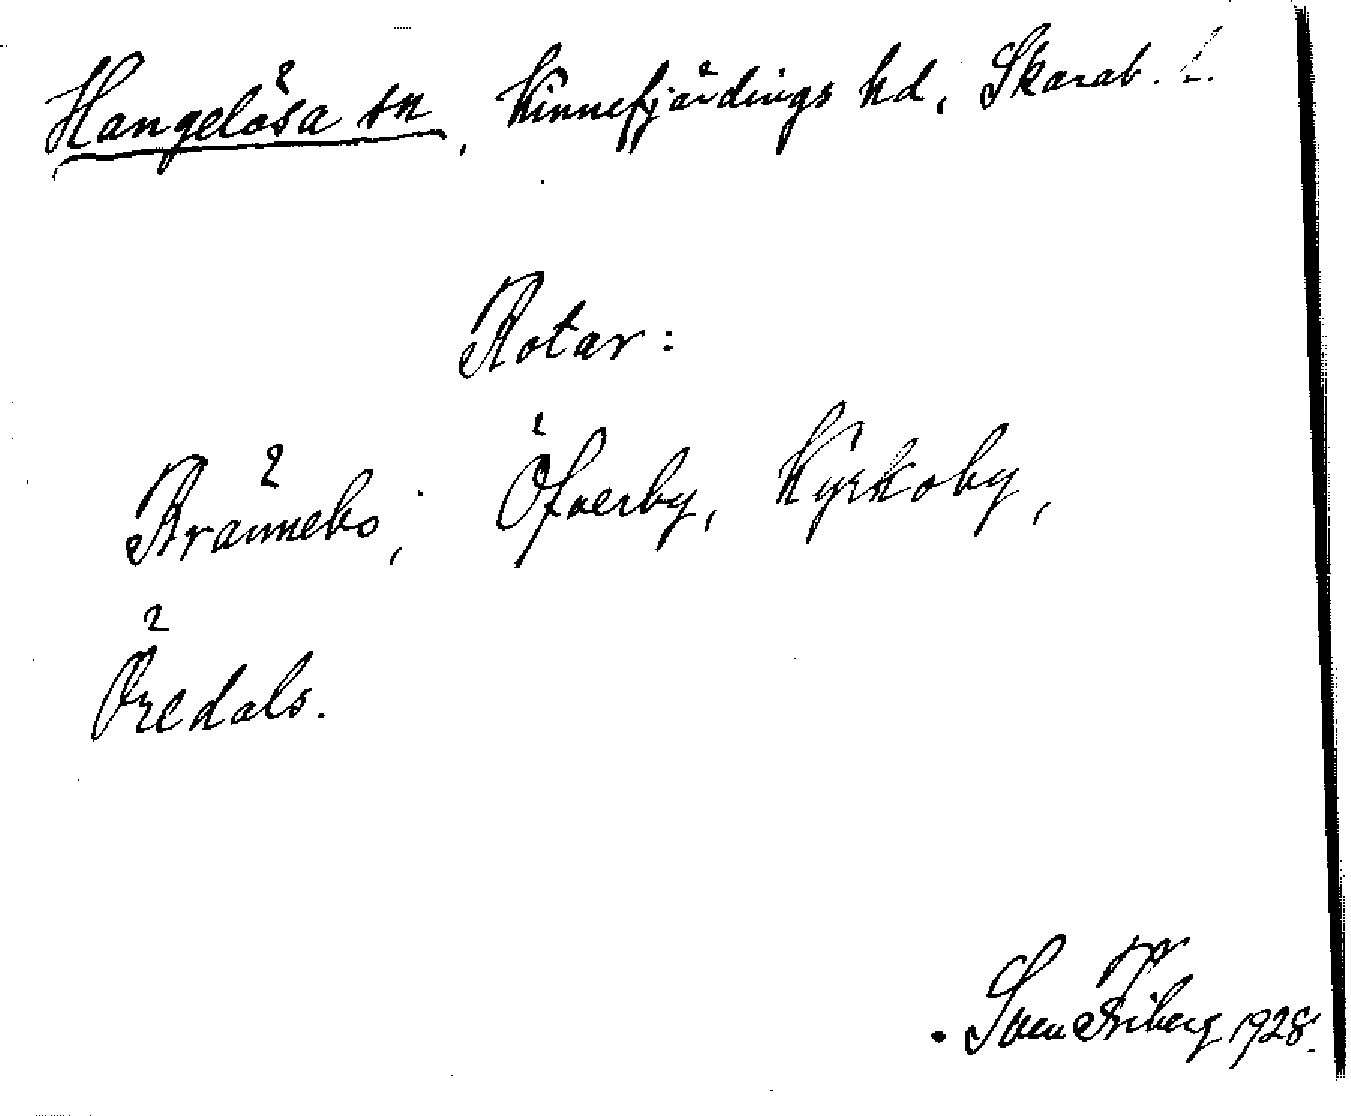 Hangelösa sn, Kinnefjärdings hd, Skarab. l.
Rotar:
Brännebo, Öfverby, Kyrkoby,
Öredals.
Sven Friberg 1928.